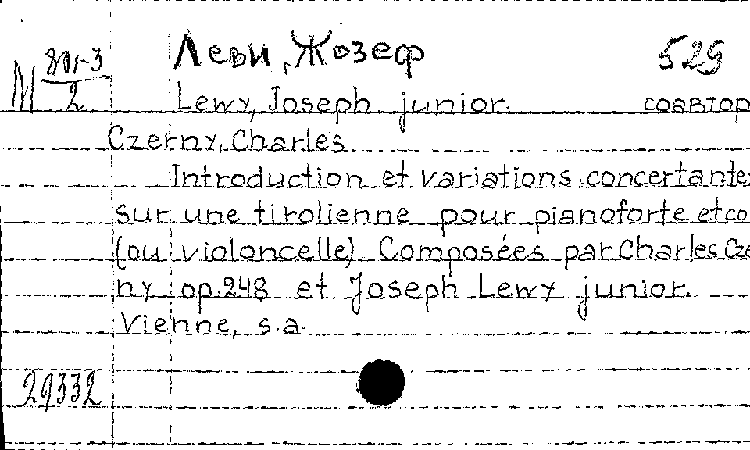 Леви, Жозеф 529
M 801-3
2
Lewy, Joseph junior. соавтор
Czerny, Charles.
Introduction et variations concertante
sur une tirolienne pour pianoforte et co
(ou violoncelle) Composées par Charles Cze
ny op.248 et Joseph Lewy junior.
Vienne, s.a.
29332